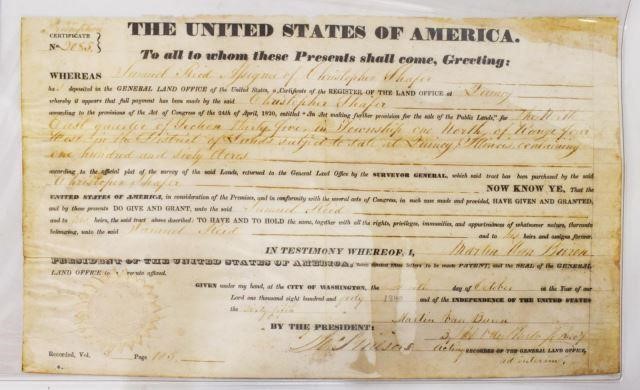 THE UNITED STATES OF AMERICA.
CERTIFICATE
No 2088
To all to whom these Presents shall come, Greeting:
WHEREAS Samuel Reed Assignee of Christopher Shafer
ha deposited in the GENERAL LAND OFFICE of the United States, a Certificate of the REGISTER OF THE LAND OFFICE at Quincy
whereby it appears that full payment has been made by the said Christopher Shafer
according to the provisions of the Act of Congress of the 24th of April, 1820, entitled "An Act making further provision for the sale of the Public Lands," for the North
East quarter of Section thirty five in Township one North, of Range four
West in the District of Lands subject to sale at Quincy Illinois containing
one hundred and sixty acres
according to the official plat of the survey of the said Lands, returned to the General Land Office by the SURVEYOR GENERAL, which said tract has been purchased by the said
Christopher Shafer NOW KNOW YE, That the
UNITED STATES OF AMERICA, in consideration of the Premises, and in conformity with the several acts of Congress, in such case made and provided, HAVE GIVEN AND GRANTED,
and by these presents DO GIVE AND GRANT, unto the said Samuel Reed
and to his heirs, the said tract above described: TO HAVE AND TO HOLD the same, together with all the rights, privileges, immunities, and appurtenances of whatsoever nature, thereunto
belonging, unto the said Samuel Reed and to his heirs and assigns forever.
IN TESTIMONY WHEREOF, I, Martin Van Buren
PRESIDENT OF THE UNITED STATES OF AMERICA, have caused these letters to be made PATENT, and the SEAL of the GENERAL
LAND OFFICE to be hereunto affixed.
GIVEN under my hand, at the CITY OF WASHINGTON, the day of October in the Year of our
Lord one thousand eight hundred and forty 1840 and of the INDEPENDENCE OF THE UNITED STATES
the Sixty fifth
BY THE PRESIDENT: Martin Van Buren
Acting RECORDER OF THE GENERAL LAND OFFICE,
ad interim.
Recorded, Vol. Page